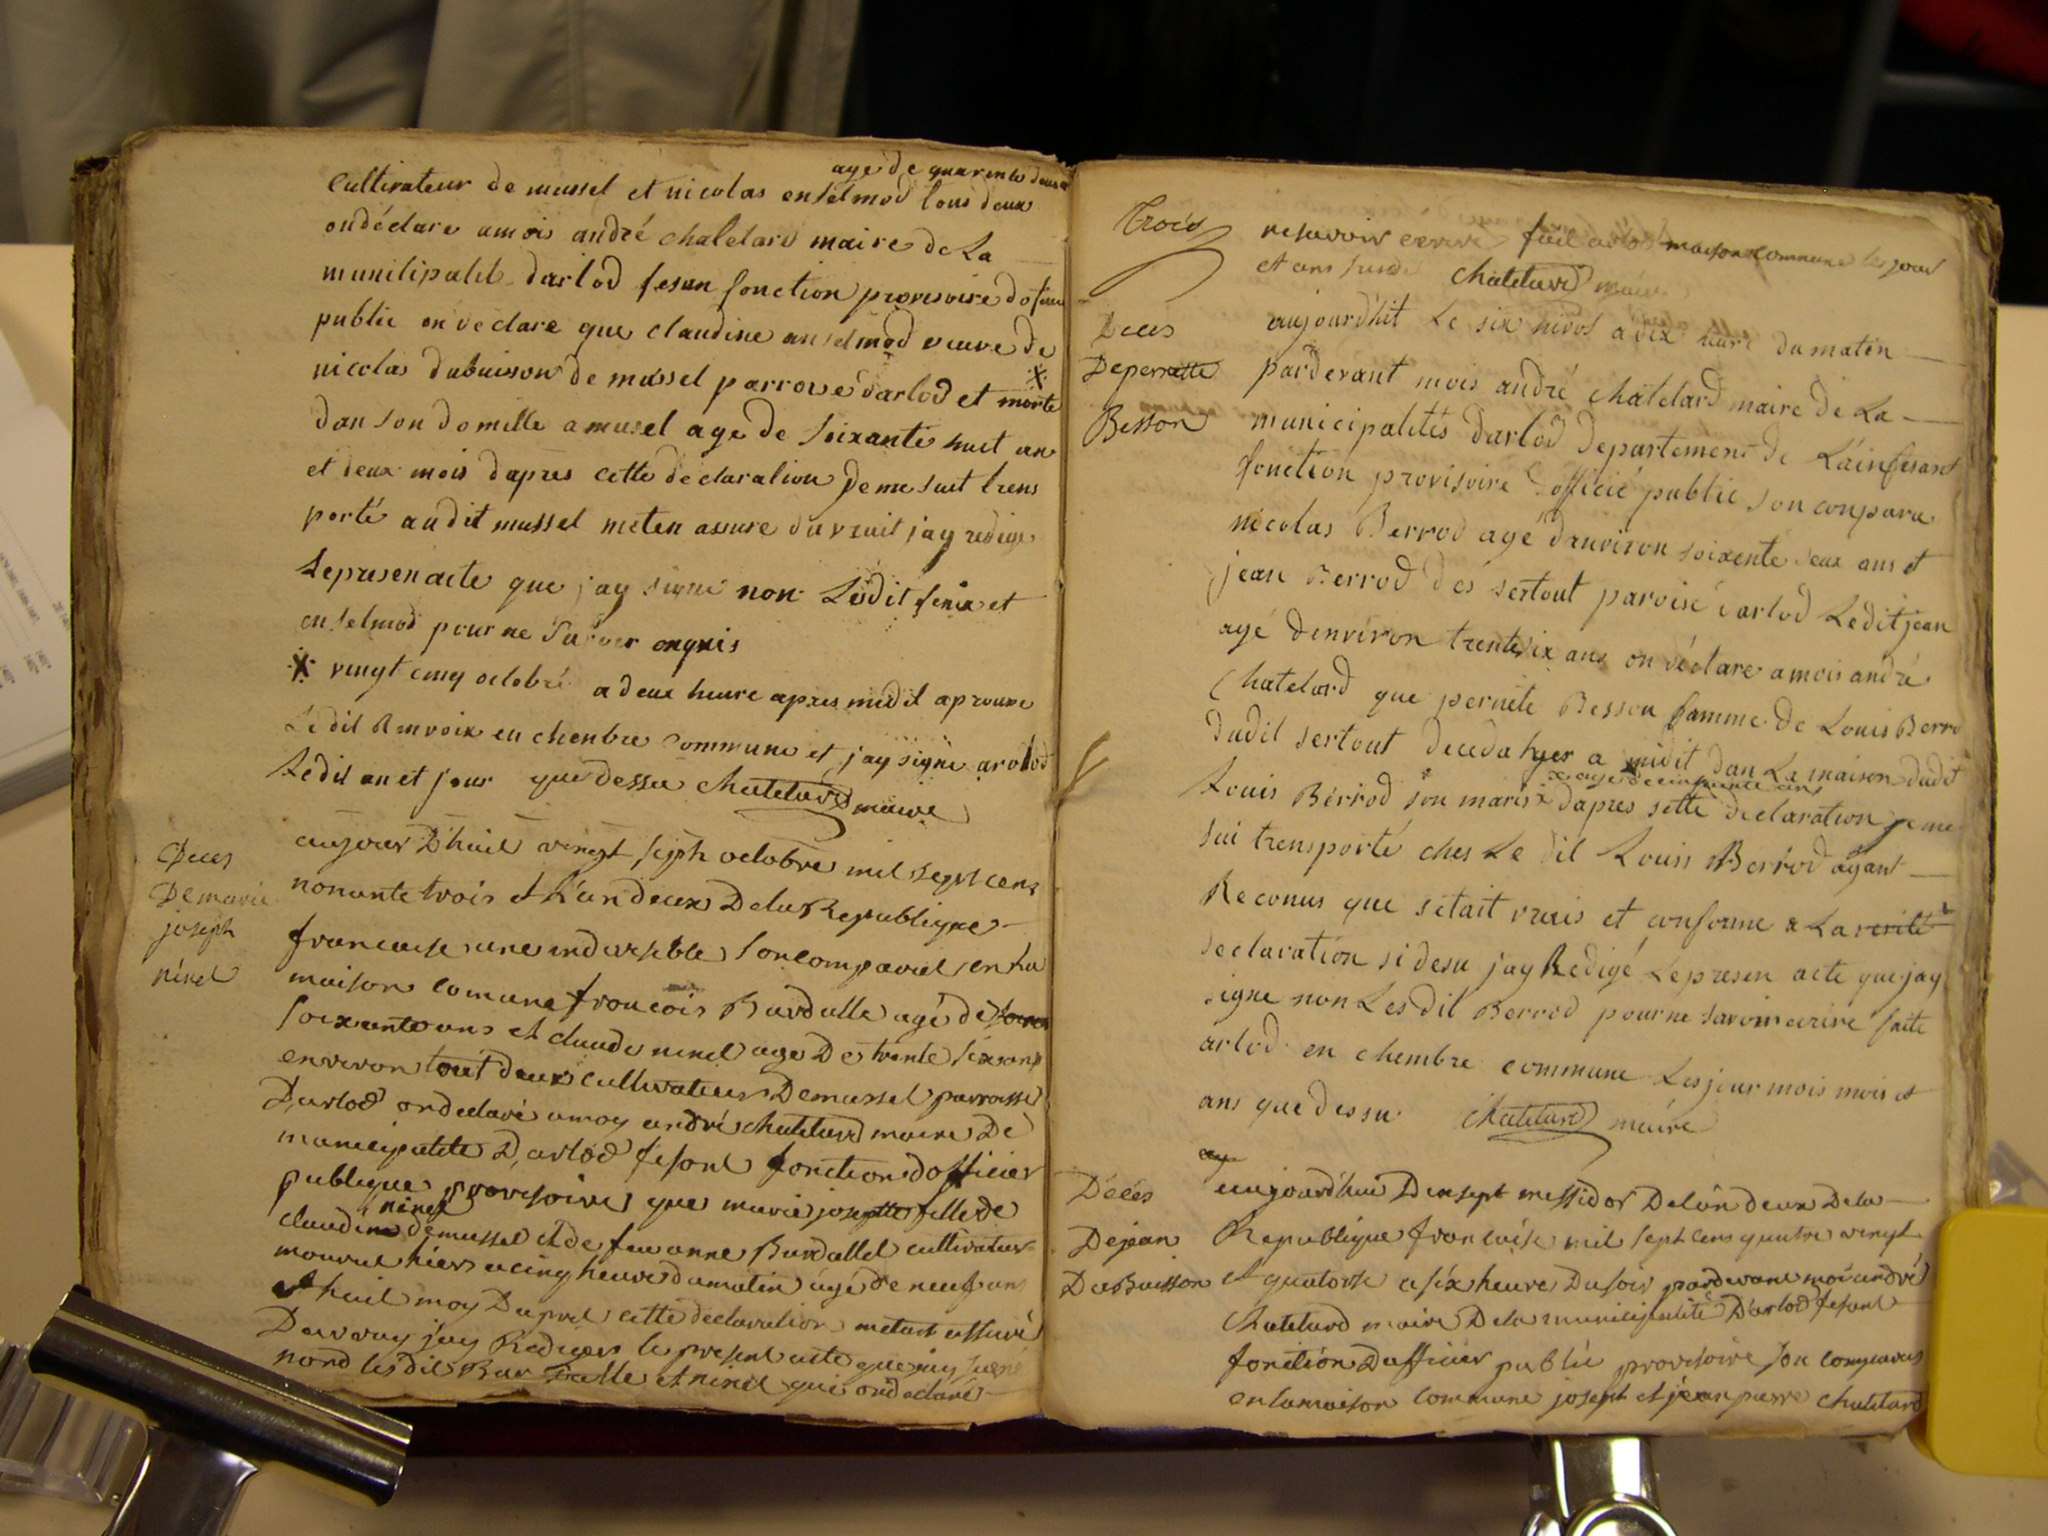 age de quarente deux
cultivateur de mussel et nicolas enselmod tous deux
ondéclare amois andré chatelard maire de La
munilipalité darlod fesan fonction provisoire dofisie
public on déclare que claudine anselmod veuve de
nicolas dubuison de mussel parroise darlod et morte
dan son domille a musel age de soixante huit an
et deux mois dapres cette declaration Je me suit trens
porté audit mussel meten assure jay redige
Lepresen acte que jay signé non Lesdit et
enselmod pour ne savoir
X vingt cinq octobre a deux heure apres midit aprouve
Ledit Renvoix en chenbre commune et jay signé arolod
Ledit an et jour que dessu chatelard maire
Deces
De marie
joseph
ninel
aujour Dhuit vingt septh octobre mil sept cens
nonante trois et Lan deux De la Republique
francaise une indivisible son comparut en la
maison comune francois Bardalle agé de
soixante ans et claude ninel age De trente six ans
environ tout deux cultivateurs De mussel parroisse
Darlod on declaré a moy andré chatelard maire De
municipalite Darlod fesant fonction dofficier
publique provisoire que marie josephte fille de
ninel
claudin de mussel et de feu anne Bardallel cultivateur
mourut hiers a cinq heure du matin agé de neuf ans
et huit moy Dapres cette declaration metant assuré
Du vray jay Rediger le present acte que jay signé
nond lesdit Bardalle et ninel qui on declaré
Trois
ne savoir ecrire fait arlod maison commune les jour
et ans susde chatelard maire
Deces
De perrette
Besson
aujourdhit Le six nivos a dix heure du maten
parderant mois andré chatelard maire de La
municipalités darlod departement de Lain fesant
fonction provisoire dofficié public son conparu
nicolas Berrod agé danviron soixente deux ans et
jean Berrod dés sertout paroisé darlod Ledit jean
agé denviron trentesix ans on déclare amois andré
Chatelard que pernete Besson famme de Louis Berro
dudit sertout deceda hyer a midit dan La maison dudit
x agé de cinquante ans
Louis Berrod son maris x dapres sette declaration je me
sui trensporté ches Le dit Louis Berrod ayant
Reconus que setait vrais et conforme a La verité
declaration sidesu jay Redigé Lepresen acte que jay
signe non Lesdit Berrod pour ne savoir ecrire faite
arlod en chembre commune Les jour mois mois et
ans que dessu chatelard maire
Décés
De jean
DuBuisson
aujourdhui Dixsept messidor De lan deux De la
Republique francaise mil sept cens quatre vingt
et quatorse a six heure Du soir pardevant moi andré
Chatelard maire De la municipalité Darlod fesant
fonction Dofficier publié provisoire son comparus
en la maison commune joseph et jean pierre chatelard